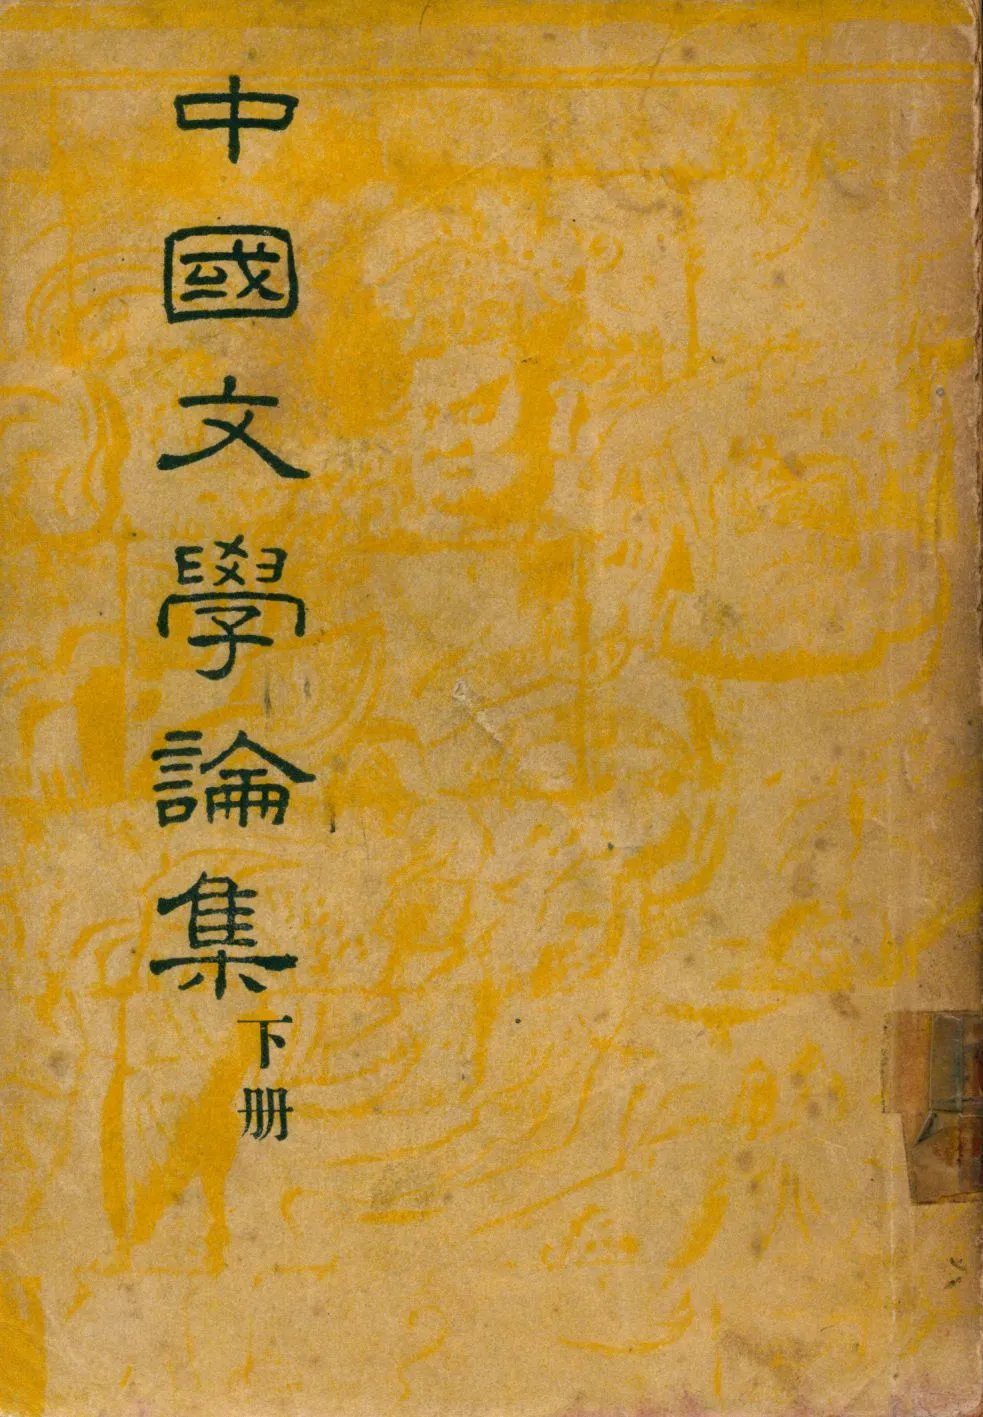 中國文學論集
下册